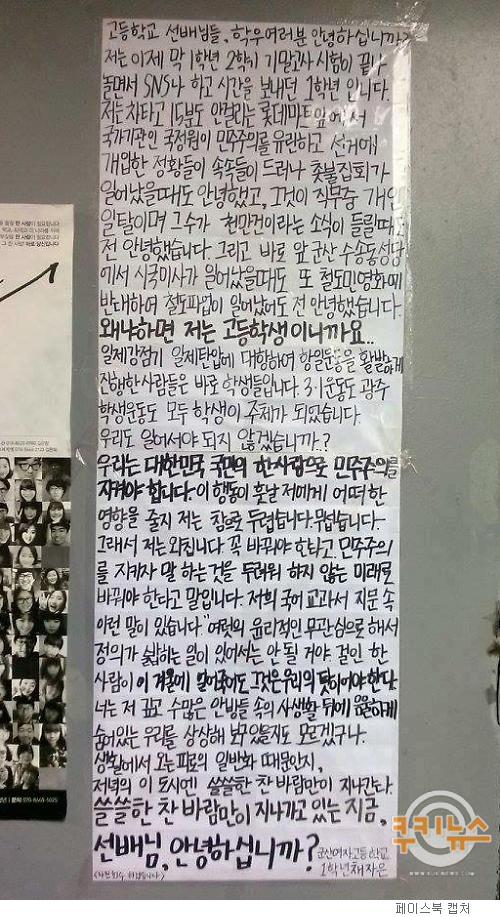 고등학교 선배님들, 학우여러분 안녕하십니까?
저는 이제 막 1학년 2학기 기말고사 시험이 끝나
놀면서 SNS나 하고 시간을 보내던 1학년 입니다.
저는 차타고 15분도 안걸리는 롯데마트 앞에서
국가기관인 국정원이 민주주의를 유린하고 선거에
개입한 정황들이 속속들이 드러나 촛불집회가
일어났을때도 안녕했고, 그것이 직무중 개인
일탈이며 그 수가 천만건이라는 소식이 들릴때도
전 안녕했습니다. 그리고 바로 앞 군산 수송동성당
에서 시국미사가 일어났을때도 또 철도민영화에
반대하여 철도파업이 일어났어도 전 안녕했습니다.
왜냐하면 저는 고등학생이니까요..
일제강점기 일제탄압에 대항하여 항일운동을 활발하게
진행한 사람들은 바로 학생들입니다. 3·1운동도 광주
학생운동도 모두 학생이 주체가 되었습니다.
우리도 일어서야 되지 않겠습니까?
우리는 대한민국 국민의 한사람으로 민주주의를
지켜야 합니다. 이 행동이 훗날 저에게 어떠한
영향을 줄지 저는 참으로 두렵습니다. 무섭습니다.
그래서 저는 외칩니다. 꼭 바꿔야 한다고. 민주주의
를 지키자 말 하는 것을 두려워 하지 않는 미래로
바꿔야 한다고 말입니다. 저희 국어 교과서 지문 속
이런 말이 있습니다. "여럿의 윤리적인 무관심으로 해서
정의가 짓밟히는 일이 있어서는 안 될 거야. 걸인 한
사람이 이 겨울에 얼어죽어도 그것은 우리의 탓이어야 한다.
너는 저 깊고 수많은 안방들 속의 사생활 뒤에 음울하게
숨어있는 우리를 상상해 보구 있을지도 모르겠구나.
생활에서 오는 피로의 일반화 때문인지,
저녁의 이 도시엔 쓸쓸한 찬 바람만이 지나간다.
쓸쓸한 찬 바람만이 지나가고 있는 지금,
선배님, 안녕하십니까?
군산여자고등학교
1학년 채자은
쿠키뉴스
페이스북 캡처